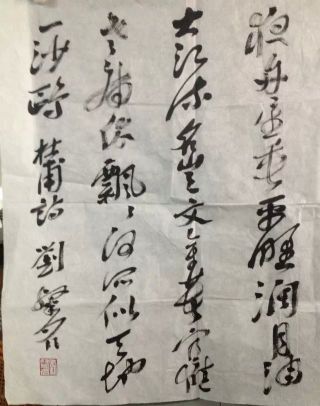 夜舟星垂平野闊月湧
大江流名豈文章著官應
老病休飄〻何所似天地
一沙鷗 杜甫詩 劉